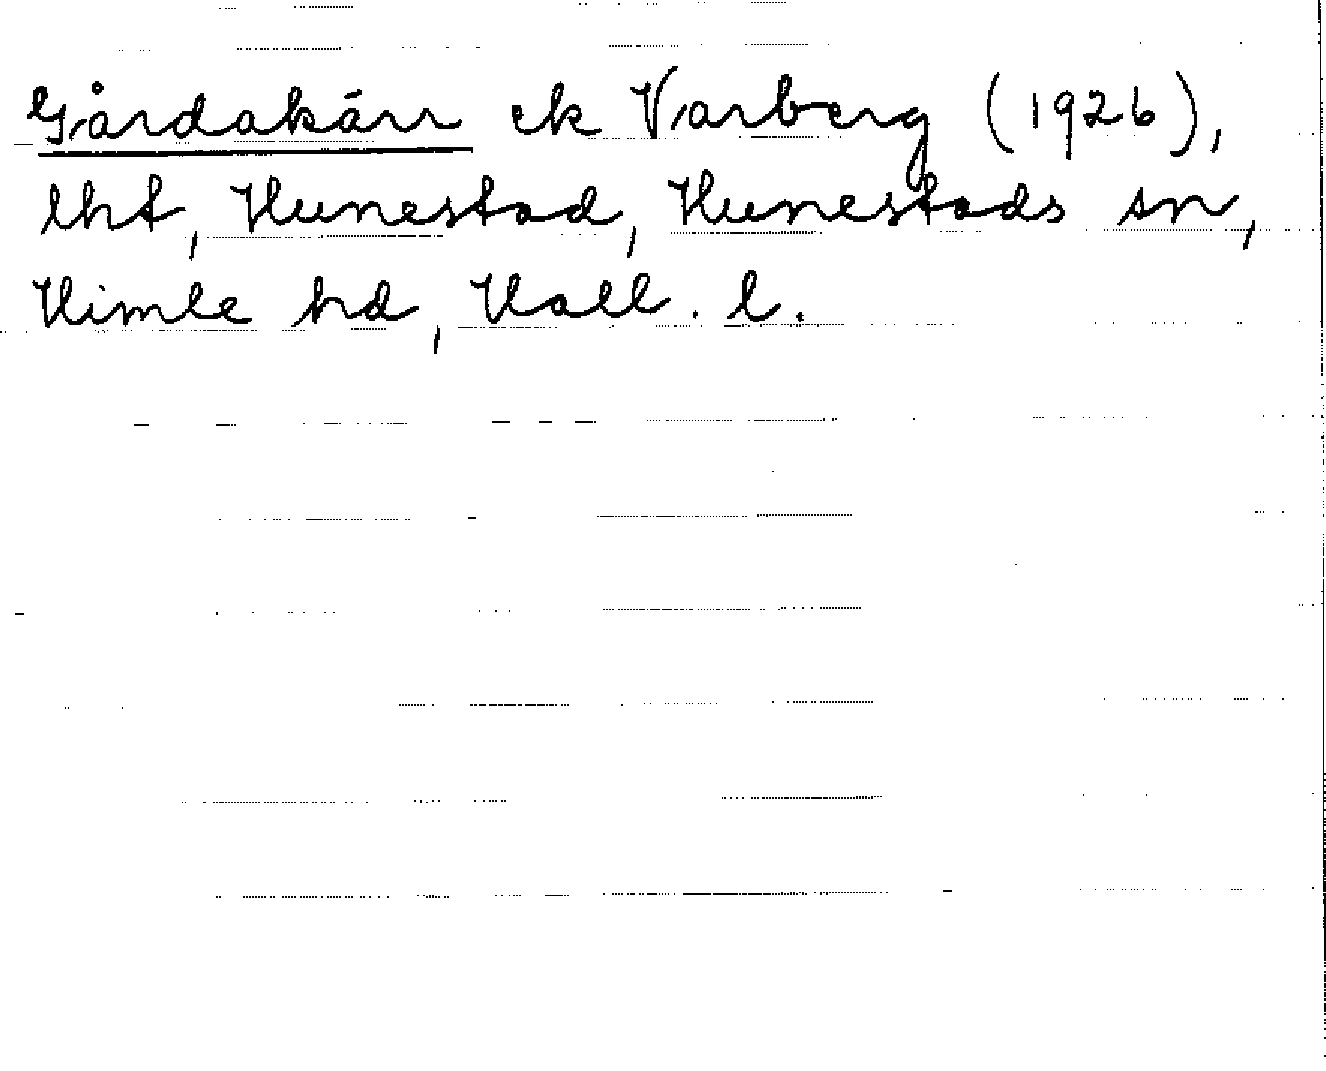 Gårdakärr ek Varberg (1926),
lht, Hunestad, Hunestads sn,
Himle hd, Hall. l.